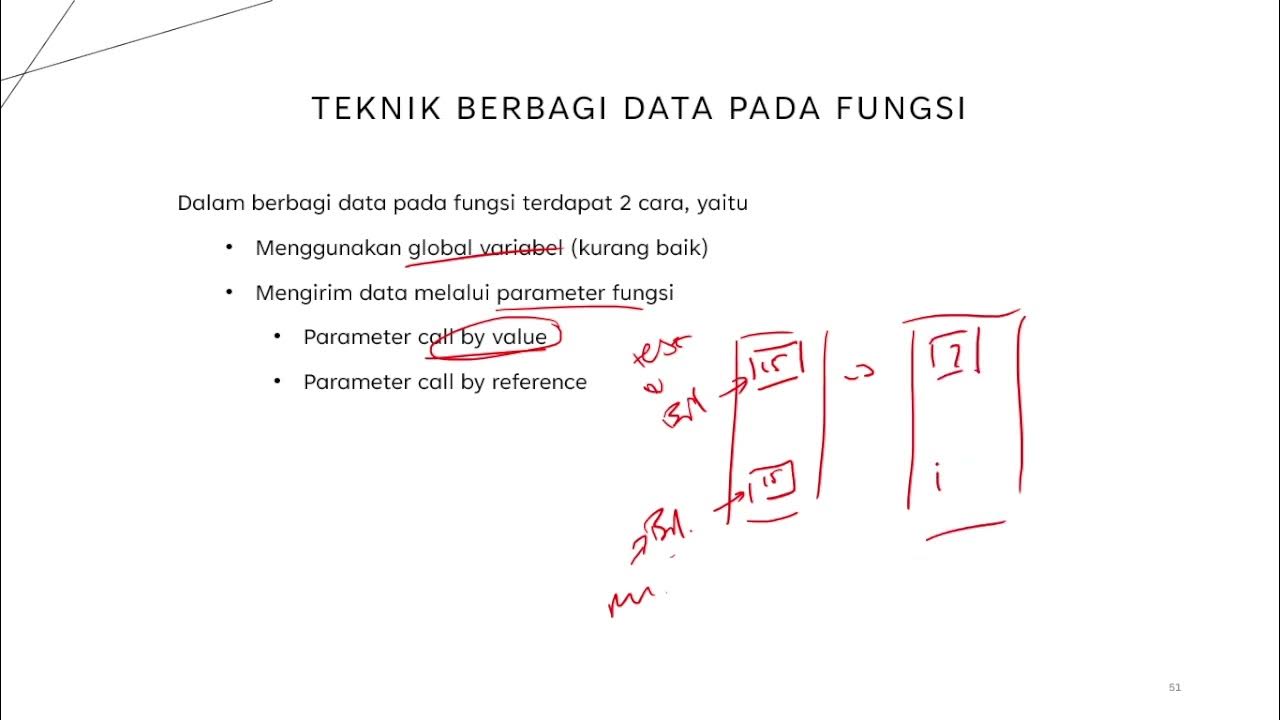 TEKNIK BERBAGI DATA PADA FUNGSI
Dalam berbagi data pada fungsi terdapat 2 cara, yaitu
• Menggunakan global variabel (kurang baik)
• Mengirim data melalui parameter fungsi
• Parameter call by value
• Parameter call by reference
test
15
Bil
15
Bil.
i
51